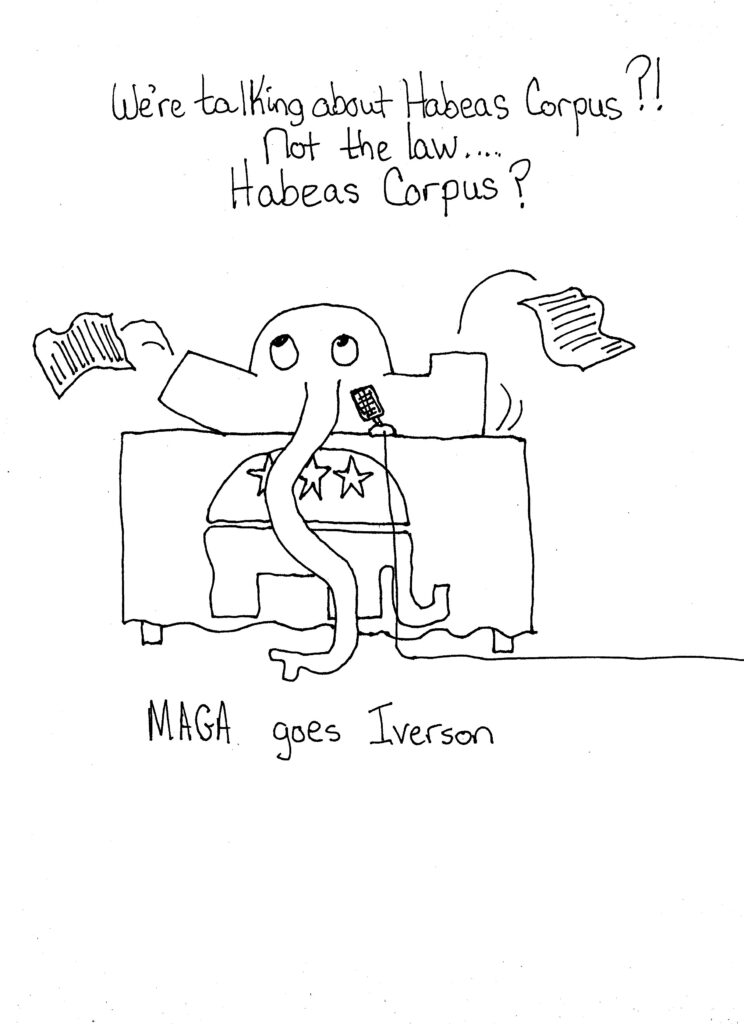 We're talking about Habeas Corpus?!
Not the law....
Habeas Corpus?
MAGA goes Iverson